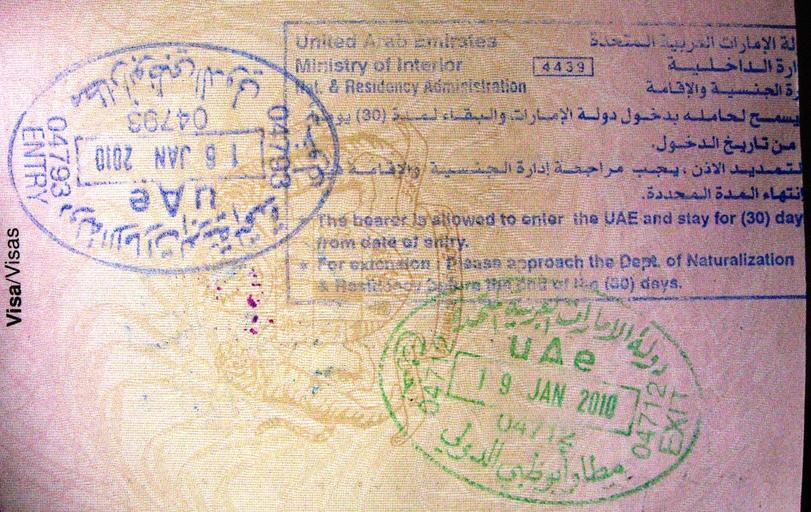 Visa/Visas
United Arab Emirates
Ministry of Interior
Nat. & Residency Administration
4439
لة الإمارات العربية المتحدة
ارة الداخلية
رة الجنسية والإقامة
يسمح لحامله بدخول دولة الإمارات والبقاء لمدة (30) يوم
من تاريخ الدخول.
لتمديد الاذن يجب مراجعة إدارة الجنسية والإقامة
إنتهاء المدة المحددة.
* The bearer is allowed to enter the UAE and stay for (30) day
from date of entry.
* For extension Please approach the Dept. of Naturalization
& Residency before the end of the (30) days.
دولة الإمارات العربية المتحدة
UAe
16 JAN 2010
04793
04793
04793
ENTRY
مطار أبوظبي الدولي
دولة الامارات العربية المتحدة
UAe
19 JAN 2010
04712
04712
04712
EXIT
مطار أبوظبي الدولي